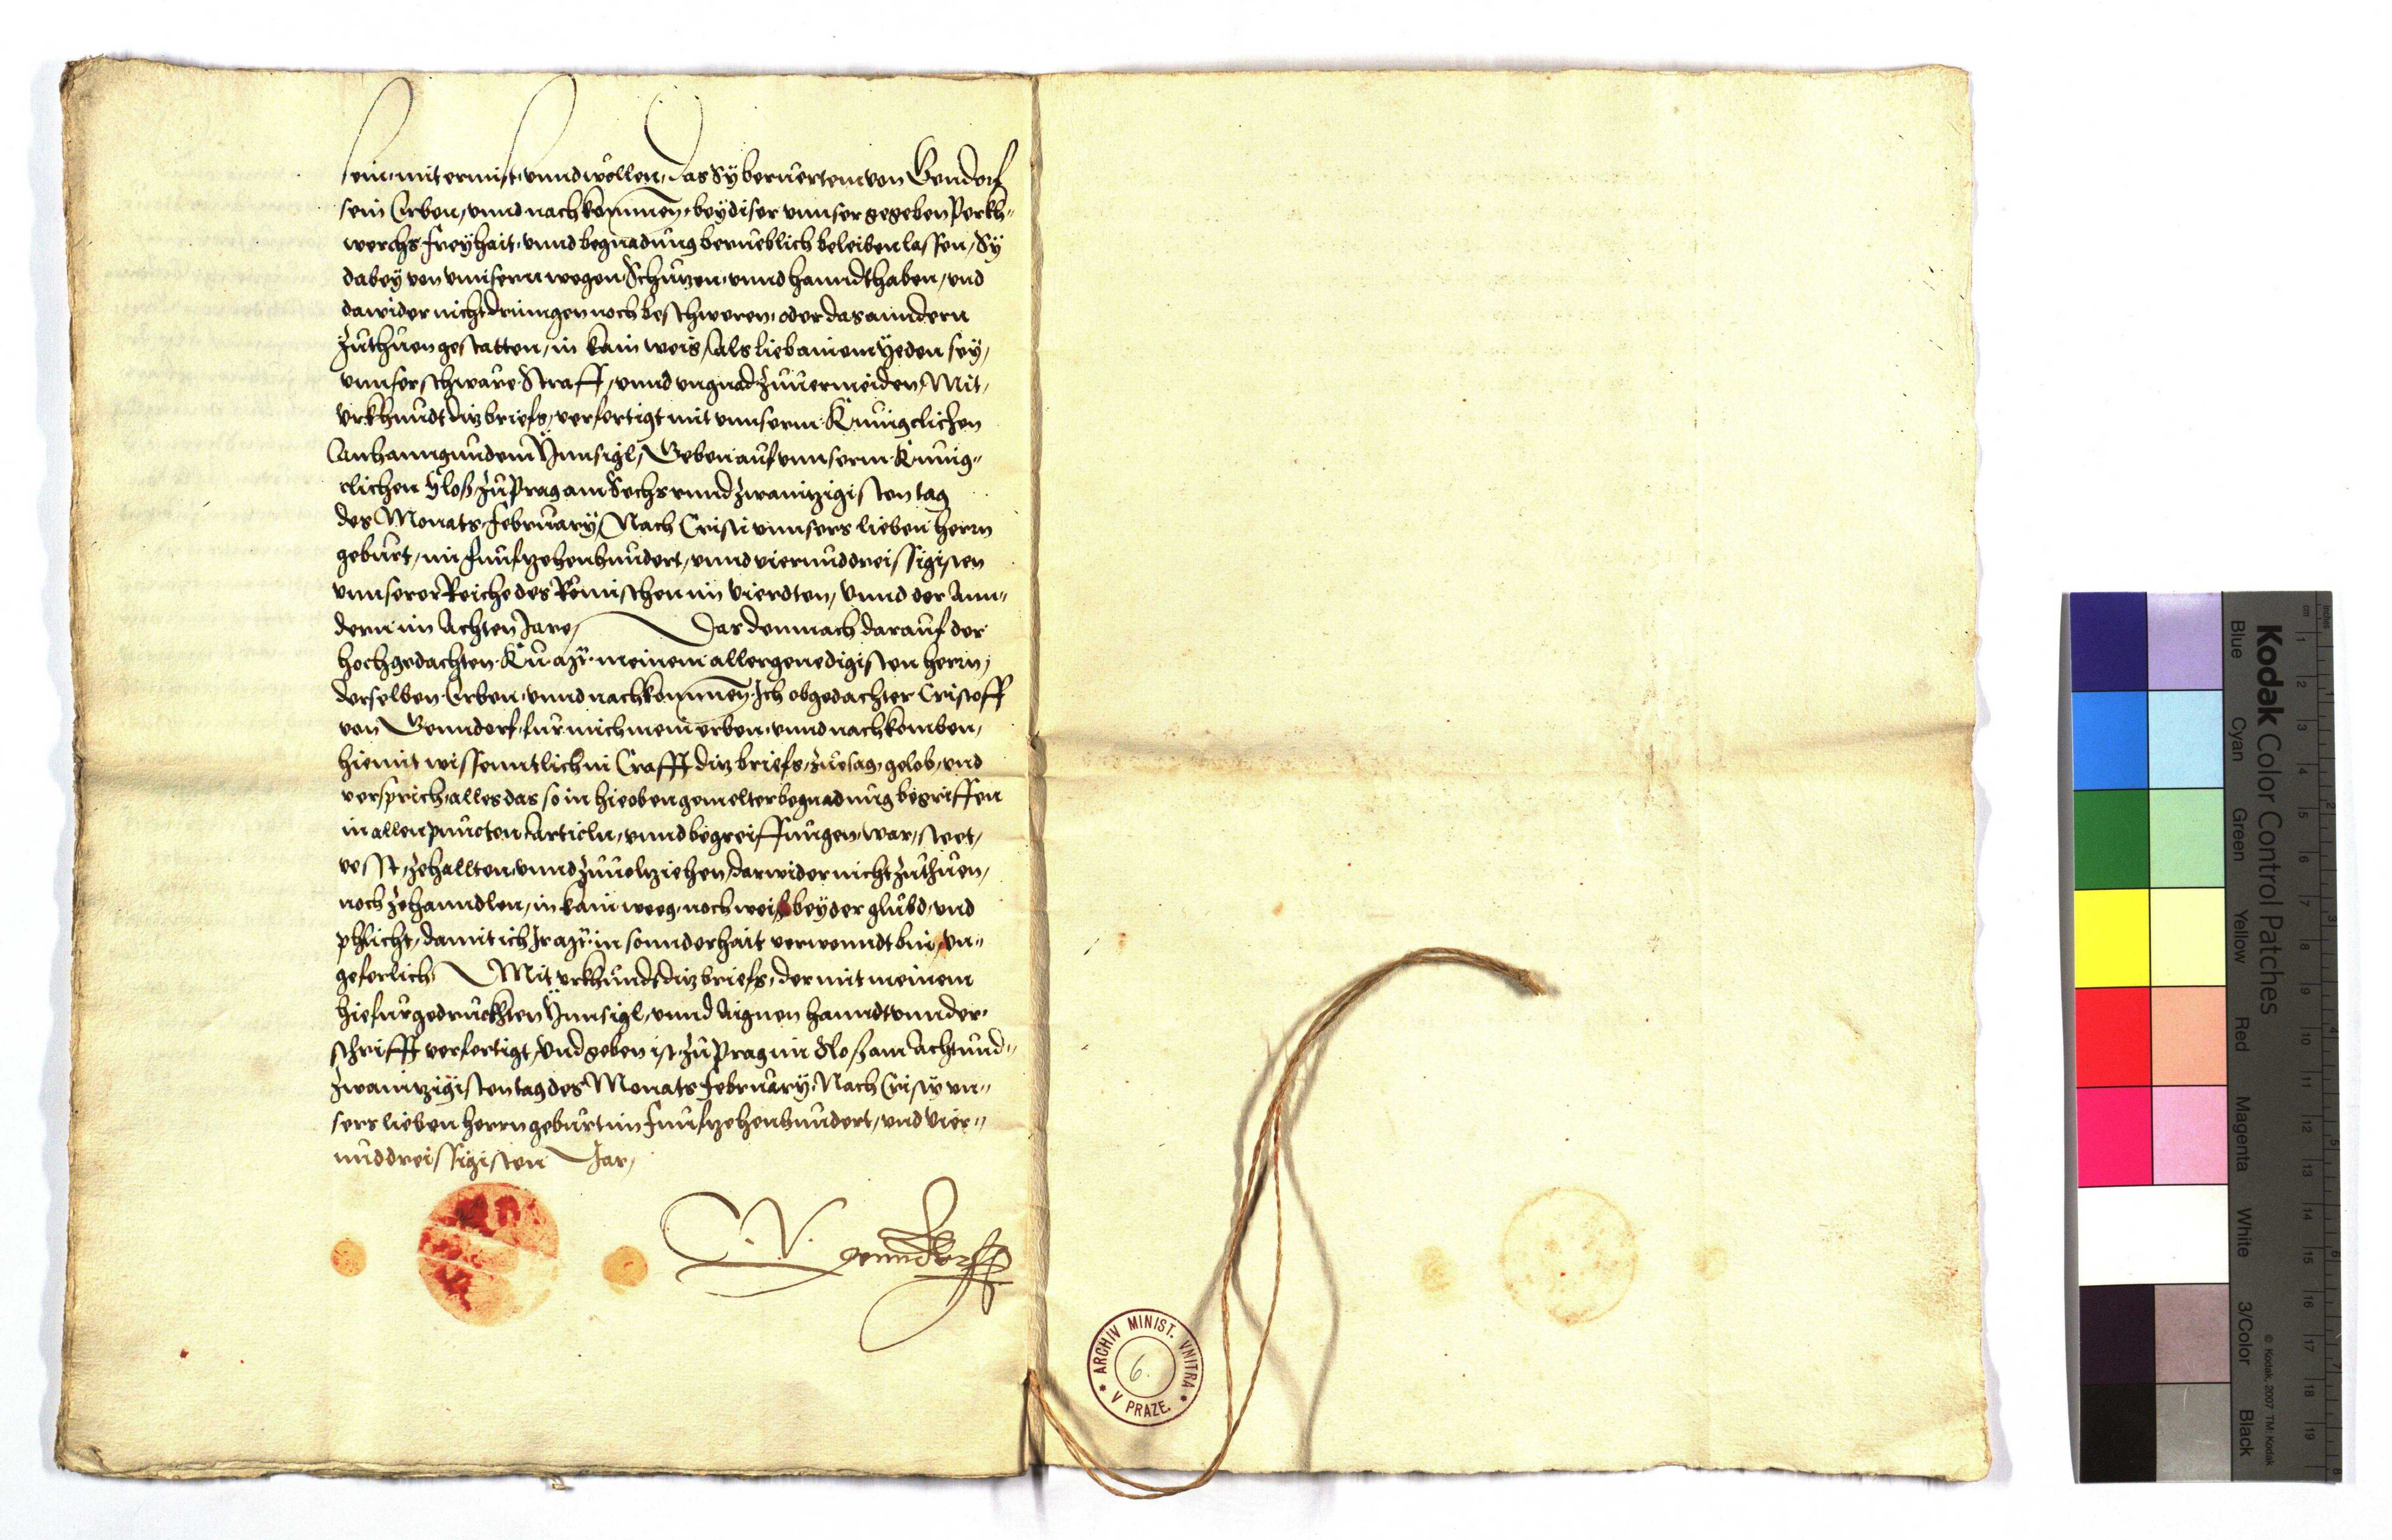 sein, mit ernnst, vnnd wöllen, das Sÿ berüertem von Gendorf
sein Erben, vnnd nachkommen, beÿ diser vnnser gegeben Perkh-
werchs freÿhait, vnnd begnadung beruëblich beleiben lassen, Sÿ
dabeÿ von vnnsern wegen Schützen, vnnd hanndthaben, vnd
dawider nicht dringen noch beschweren, oder das anndern
züthüen gestatten, in kain weis, Als lieb ainem Yeden seÿ,
vnnser schwäre Straff, vnnd vngnad züuermeiden, Mit,
vrkhundt ditz briefs, verfertigt mit vnnserm Künigclichen
Anhanngundem Ynnsigl, Geben auf vnnserm Künig-
clichen Sloß, zü Prag am Sechsvnndzwaintzigisten tag
des Monats Februarÿ, Nach Cristi vnnsers lieben herrn
gebürt, im Fünfftzehenhundert, vnnd viervnddreissigisten
vnnserer Reiche des Römischen im Vierdten, vnnd der Ann-
dern im Achten Jare, Dar demnach darauf der
hochgedachten Kü. Mt. meinem allergenedigisten herrn,
derselben Erben, vnnd nachkommen, Ich obgedachter Cristoff
von Genndorf, für mich mein erben, vnnd nachkomben,
hiemit wissenntlich in Crafft ditz briefs, züesag, gelob, vnd
versprich, alles das so in hieobengemelter begnadung begriffen
in allen puncten, Articln, vnnd begreiffungen, war, stet,
vesst, zehallten, vnnd züuolziehen, darwider nicht züthüen,
noch zehanndlen, in kain weeg, noch weiß beÿ der glübd, vnd
phlicht, damit ich Ir Mt. in sonnderhait verwenndt bin, vn-
geferlich Mit vrkhundt ditz briefs, der mit meinem
hiefürgedruckhten Ynnsigl, vnnd Aignen hanndt vnnder-
schrifft verfertigt, Vnd geben ist, zü Prag im Sloß am Achtund-
zwaintzigisten tag des Monats Februarÿ, Nach Cristÿ vn-
sers lieben herrn gebürt im Fünfftzehenhundert, vnd vier-
unddreissigisten Jar,
C. V. genndorff
ARCHIV MINIST. VNITRA
V PRAZE.
6.
Kodak Color Control Patches
Blue Cyan Green Yellow Red Magenta White 3/Color Black
© Kodak, 2007 TM: Kodak
cm 1 2 3 4 5 6 7 8 9 10 11 12 13 14 15 16 17 18 19